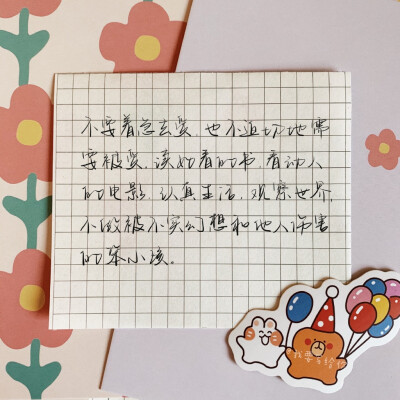 不要着急去爱,也不迫切地需
要被爱,读好看的书,看动人
的电影,认真生活,观察世界,
不做被不实幻想和他人伤害
的笨小孩。